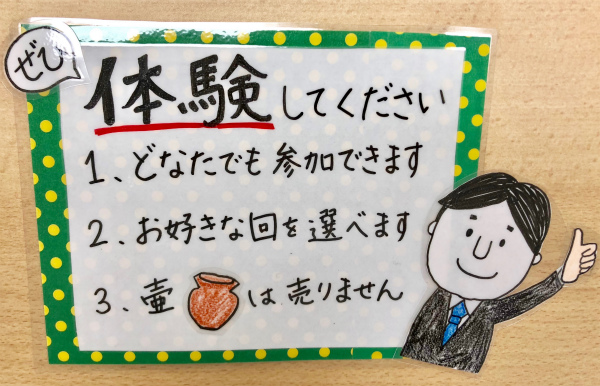 ぜひ
体験してください
1、どなたでも参加できます
2、お好きな回を選べます
3、壷は売りません